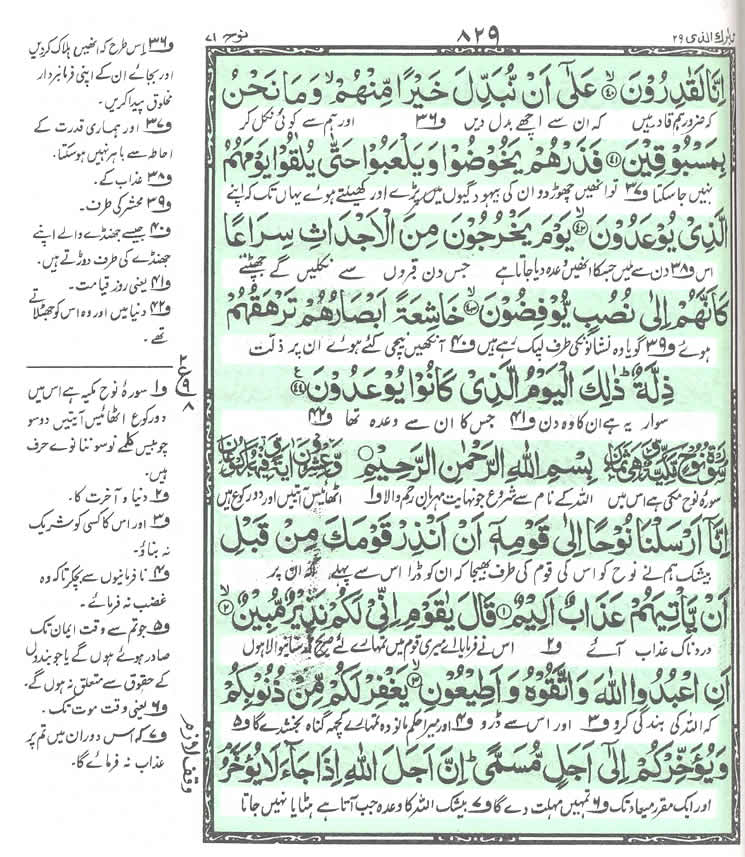 تبارك الذی ۲۹
۸۲۹
نوح ۷۱
اِنَّا لَقٰدِرُوْنَ ۙ۴۰ عَلٰٓی اَنْ نُّبَدِّلَ خَیْرًا مِّنْهُمْ ۙ وَمَا نَحْنُ
کہ ضرور ہم قادر ہیں کہ ان سے اچھے بدل دیں و۳۶ اور ہم سے کوئی نکل کر
بِمَسْبُوْقِیْنَ ۴۱ فَذَرْهُمْ یَخُوْضُوْا وَیَلْعَبُوْا حَتّٰی یُلٰقُوْا یَوْمَهُمُ
نہیں جاسکتا و۳۷ تو انھیں چھوڑ دو ان کی بیہودگیوں میں پڑے اور کھیلتے ہوئے یہاں تک کہ اپنے
الَّذِیْ یُوْعَدُوْنَ ۙ۴۲ یَوْمَ یَخْرُجُوْنَ مِنَ الْاَجْدَاثِ سِرَاعًا
اس و۳۸ دن سے ملیں جسکا انھیں وعدہ دیا جاتا ہے جس دن قبروں سے نکلیں گے جھپٹتے
کَاَنَّهُمْ اِلٰی نُصُبٍ یُّوْفِضُوْنَ ۙ۴۳ خَاشِعَةً اَبْصَارُهُمْ تَرْهَقُهُمْ
ہوئے و۳۹ گویا وہ نشانوں کی طرف لپک رہے ہیں و۴۰ آنکھیں نیچی کئے ہوئے ان پر ذلت
ذِلَّةٌ ؕ ذٰلِكَ الْیَوْمُ الَّذِیْ کَانُوْا یُوْعَدُوْنَ ۴۴
سوار یہ ہے ان کا وہ دن و۴۱ جس کا ان سے وعدہ تھا و۴۲
بِسْمِ اللهِ الرَّحْمٰنِ الرَّحِیْمِ
سورۂ نوح مکی ہے اس میں اللہ کے نام سے شروع جو نہایت مہربان رحم والا و۱ اٹھائیس آیتیں اور دو رکوع ہیں
اِنَّاۤ اَرْسَلْنَا نُوْحًا اِلٰی قَوْمِهٖۤ اَنْ اَنْذِرْ قَوْمَكَ مِنْ قَبْلِ
بیشک ہم نے نوح کو اس کی قوم کی طرف بھیجا کہ ان کو ڈرا اس سے پہلے کہ ان پر
اَنْ یَّاْتِیَهُمْ عَذَابٌ اَلِیْمٌ ۱ قَالَ یٰقَوْمِ اِنِّیْ لَکُمْ نَذِیْرٌ مُّبِیْنٌ ۙ۲
دردناک عذاب آئے و۲ اس نے فرمایا اے میری قوم میں تمہارے لئے صریح ڈر سنانیوالا ہوں
اَنِ اعْبُدُوا اللهَ وَاتَّقُوْهُ وَاَطِیْعُوْنِ ۙ۳ یَغْفِرْ لَکُمْ مِّنْ ذُنُوْبِکُمْ
کہ اللہ کی بندگی کرو و۳ اور اس سے ڈرو و۴ اور میرا حکم مانو وہ تمہارے کچھ گناہ بخشدے گا و۵
وَیُؤَخِّرْکُمْ اِلٰۤی اَجَلٍ مُّسَمًّی ؕ اِنَّ اَجَلَ اللهِ اِذَا جَآءَ لَا یُؤَخَّرُ
اور ایک مقرر میعاد تک و۶ تمہیں مہلت دے گا و۷ بیشک اللہ کا وعدہ جب آتا ہے ہٹایا نہیں جاتا
و۳۶ اس طرح کہ انھیں ہلاک کردیں
اور بجائے ان کے اپنی فرمانبردار
مخلوق پیدا کریں۔
و۳۷ اور ہماری قدرت کے
احاطہ سے باہر نہیں ہوسکتا۔
و۳۸ عذاب کے۔
و۳۹ محشر کی طرف۔
و۴۰ جیسے جھنڈے والے اپنے
جھنڈے کی طرف دوڑتے ہیں۔
و۴۱ یعنی روز قیامت۔
و۴۲ دنیا میں اور وہ اس کو جھٹلاتے
تھے۔
۲
ع
۹
۸
و۱ سورۂ نوح مکیہ ہے اس میں
دو رکوع اٹھائیس آیتیں دو سو
چوبیس کلمے نو سو ننانوے حرف
ہیں۔
و۲ دنیا و آخرت کا۔
و۳ اور اس کا کسی کو شریک
نہ بناؤ۔
و۴ نافرمانیوں سے بچکر تاکہ وہ
غضب نہ فرمائے۔
و۵ جو تم سے وقت ایمان تک
صادر ہوئے ہوں گے یا جو بندوں
کے حقوق سے متعلق نہ ہوں گے۔
و۶ یعنی وقت موت تک۔
و۷ کہ اس دوران میں تم پر
عذاب نہ فرمائے گا۔
وقف لازم